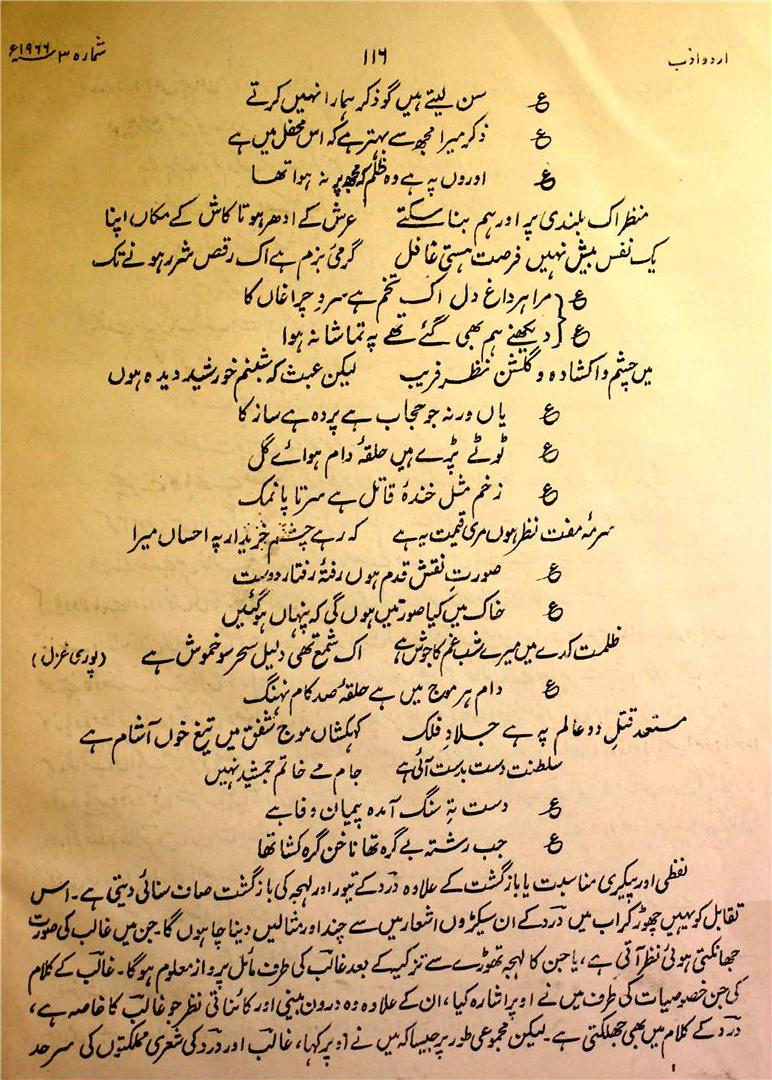 اردو ادب ۱۱۶ شمارہ ۳ سنہ ۱۹۶۶ء
ع سن لیتے ہیں گو ذکر ہمارا نہیں کرتے
ع ذکر میرا مجھ سے بہتر ہے کہ اس محفل میں ہے
ع اوروں پہ ہے وہ ظلم کہ مجھ پر نہ ہوا تھا
منظر اک بلندی پر اور ہم بنا سکتے عرش کے ادھر ہوتا کاش کے مکاں اپنا
یک نفس بیش نہیں فرصت ہستی غافل گرمیٔ بزم ہے اک رقص شرر ہونے تک
ع مرا ہر داغ دل اک تخم ہے سرو چراغاں کا
ع دیکھنے ہم بھی گئے تھے پہ تماشا نہ ہوا
میں چشم واکشادہ و گلشن نظر فریب لیکن عبث کہ شبنم خورشید دیدہ ہوں
ع یاں ورنہ جو حجاب ہے پردہ ہے ساز کا
ع ٹوٹے پڑے ہیں حلقۂ دام ہوائے گل
ع زخم مثل خندۂ قاتل ہے سرتا پا نمک
سرمۂ مفت نظر ہوں مری قیمت یہ ہے کہ رہے چشم خریدار پہ احساں میرا
ع صورتِ نقش قدم ہوں رفتۂ رفتار دوست
ع خاک میں کیا صورتیں ہوں گی کہ پنہاں ہوگئیں
ظلمت کدے میں میرے شب غم کا جوش ہے اک شمع تھی دلیل سحر سو خموش ہے (پوری غزل)
ع دام ہر موج میں ہے حلقۂ صد کام نہنگ
مستعد قتلِ دو عالم پہ ہے جلادِ فلک کہکشاں موج شفق میں تیغ خوں آشام ہے
سلطنت دست بدست آئی ہے جام مے خاتم جمشید نہیں
ع دست تہِ سنگ آمدہ پیمان وفا ہے
ع جب رشتہ بے گرہ تھا ناخن گرہ کشا تھا
لفظی اور پیکری مناسبت یا بازگشت کے علاوہ درد کے تیور اور لہجہ کی بازگشت صاف سنائی دیتی ہے۔ اس
تقابل کو یہیں چھوڑ کر اب میں درد کے ان سیکڑوں اشعار میں سے چند اور مثالیں دینا چاہوں گا۔ جن میں غالب کی صورت
جھانکتی ہوئی نظر آتی ہے، یا جن کا لہجہ تھوڑے سے تزکیہ کے بعد غالب کی طرف مائل پرواز معلوم ہوگا۔ غالب کے کلام
کی جن خصوصیات کی طرف میں نے اوپر اشارہ کیا، ان کے علاوہ وہ درون بینی اور کائناتی نظر جو غالب کا خاصہ ہے،
درد کے کلام میں بھی جھلکتی ہے۔ لیکن مجموعی طور پر جیسا کہ میں نے اوپر کہا، غالب اور درد کی شعری مملکتوں کی سرحد